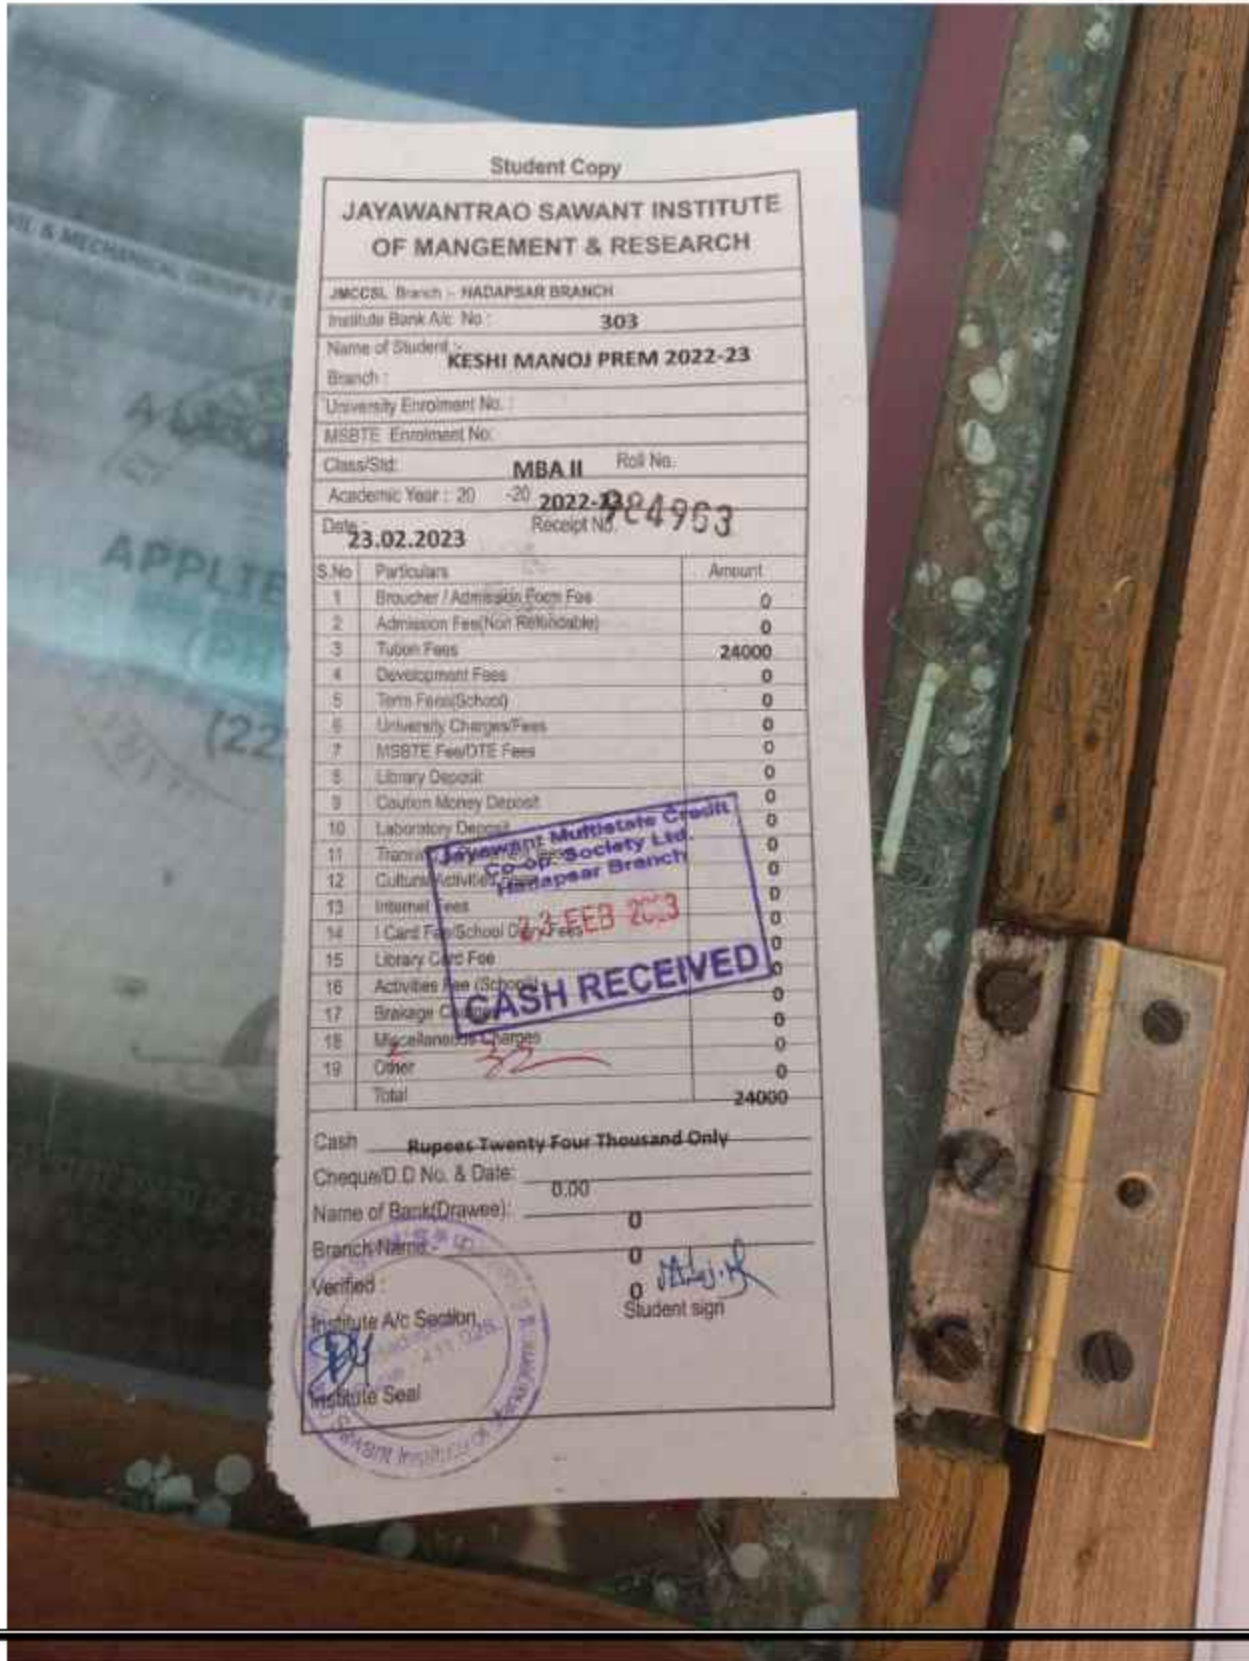 Student Copy
JAYAWANTRAO SAWANT INSTITUTE
OF MANGEMENT & RESEARCH
JMCCSL Branch :- HADAPSAR BRANCH
Institute Bank A/c No : 303
Name of Student :- KESHI MANOJ PREM 2022-23
Branch :
University Enrolment No. :
MSBTE Enrolment No:
Class/Std: MBA II Roll No.
Academic Year : 20 -20 2022-23
Date : 23.02.2023 Receipt No. 984963
S.No Particulars Amount
1 Broucher / Admission Form Fee 0
2 Admission Fee(Non Refundable) 0
3 Tution Fees 24000
4 Development Fees 0
5 Term Fees(School) 0
6 University Charges/Fees 0
7 MSBTE Fee/DTE Fees 0
8 Library Deposit 0
9 Caution Money Deposit 0
10 Laboratory Deposit 0
11 0
12 Cultural Activities 0
13 Internet Fees 0
14 I Card Fee/School Diary Fees 0
15 Library Card Fee 0
16 Activities Fee (School) 0
17 Brakage Charges 0
18 Miscellaneous Charges 0
19 Other 0
Total 24000
Jayawant Multistate Credit
Co-op. Society Ltd.
Hadapsar Branch
23 FEB 2023
CASH RECEIVED
Cash Rupees Twenty Four Thousand Only
Cheque/D.D No. & Date: 0.00
Name of Bank(Drawee): 0
Branch Name:- 0
Verified : 0
Institute A/c Section Student sign
Institute Seal
& MECHANICAL
APPLIE
(22